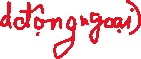 dctọng ngoại)